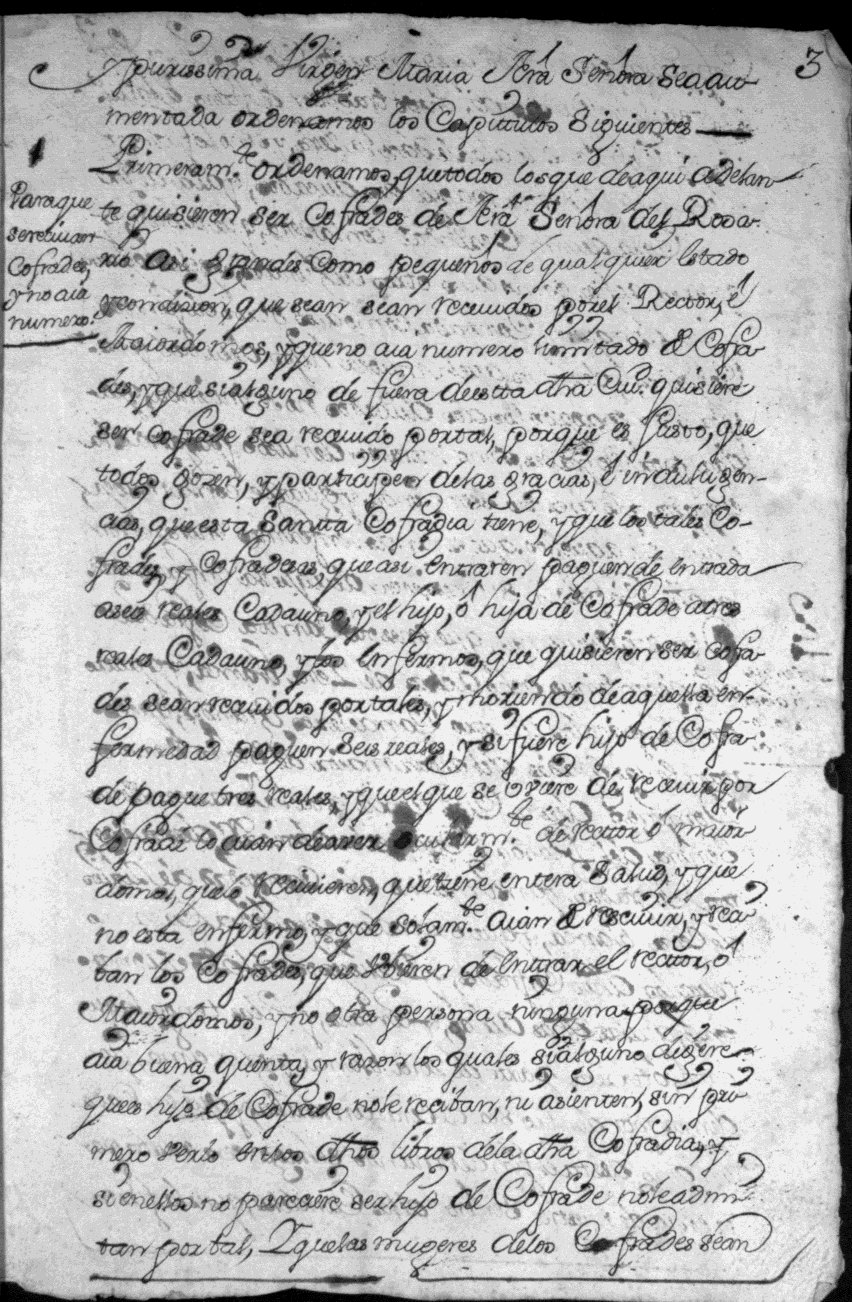 3
ypurissima Virgen Maria Nrâ Señora sea au-
mentada ordenamos los Capitulos Siguientes
Primeram.te ordenamos, quetodos losque deaqui adelan-
te quisieren ser Cofrades de Nrâ Señora del Rosa-
rio asi grandes Como pequeños de qualquier estado
ycondizion, que sean sean reciuidos porel Rector, é
Maiordomos, yqueno aia numero limitado de Cofra-
des, yque sialguno de fuera deestta dhâ Ciu.d quisiere
ser cofrade sea reciuido portal, porque es Justo, que
todos gozen, yparticipen delas gracias, é indulugen-
cias, que esta Santta Cofradia tiene, yque los tales Co-
frades, y Cofradesas queasi entraren paguen de entrada
aseis reales Cadauno, yel hijo, ó hija de Cofrade atres
reales Cadauno, ylos enfermos, que quisieren ser Cofra-
des sean reciuidos portales, ymoriendo deaquella en-
fermedad paguen Seis reales, y si fuere hijo de Cofra-
de pague tres reales, yque el que se uviere de reciuir por
Cofrade lo aian deaver ocularm.te de rector ó maior-
domos, queló reciuieren, quetiene entera Salud, yque
no esta enfermo, y que solam.te aian de resciuir, y
los Cofrades, que ubieren de entrar el rector, ó
Maiordomos, yno otra persona ninguna porque
aia buena quenta, y razon los quales si alguno digere
ques hijo de Cofrade nole reciban, ni asienten, sin pri-
mero verlo enlos dhôs libros dela dhâ Cofradia, y
sienellos no pareciere ser hijo de Cofrade nole admi-
tan portal, Yquelas mugeres delos Cofrades sean
Paraque
sereciuan
Cofrades,
yno aia
numero.